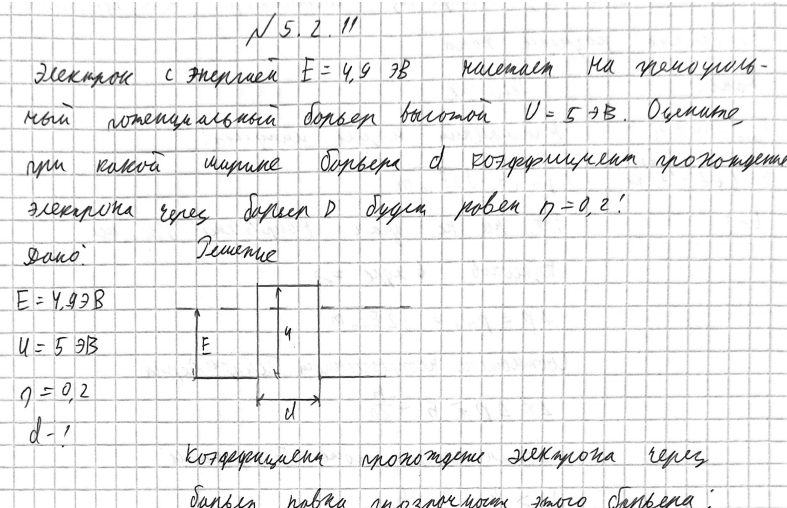 N 5.2.11
Электрон с энергией E = 4,9 эВ налетает на прямоуголь-
ный потенциальный барьер высотой U = 5 эВ. Оцените,
при какой ширине барьера d коэффициент прохождения
электрона через барьер D будет равен η = 0,2!
Дано: Решение
E = 4,9 эВ
U = 5 эВ
η = 0,2
d - !
E
U
d
Коэффициент прохождение электрона через
барьер равна прозрачности этого барьера: